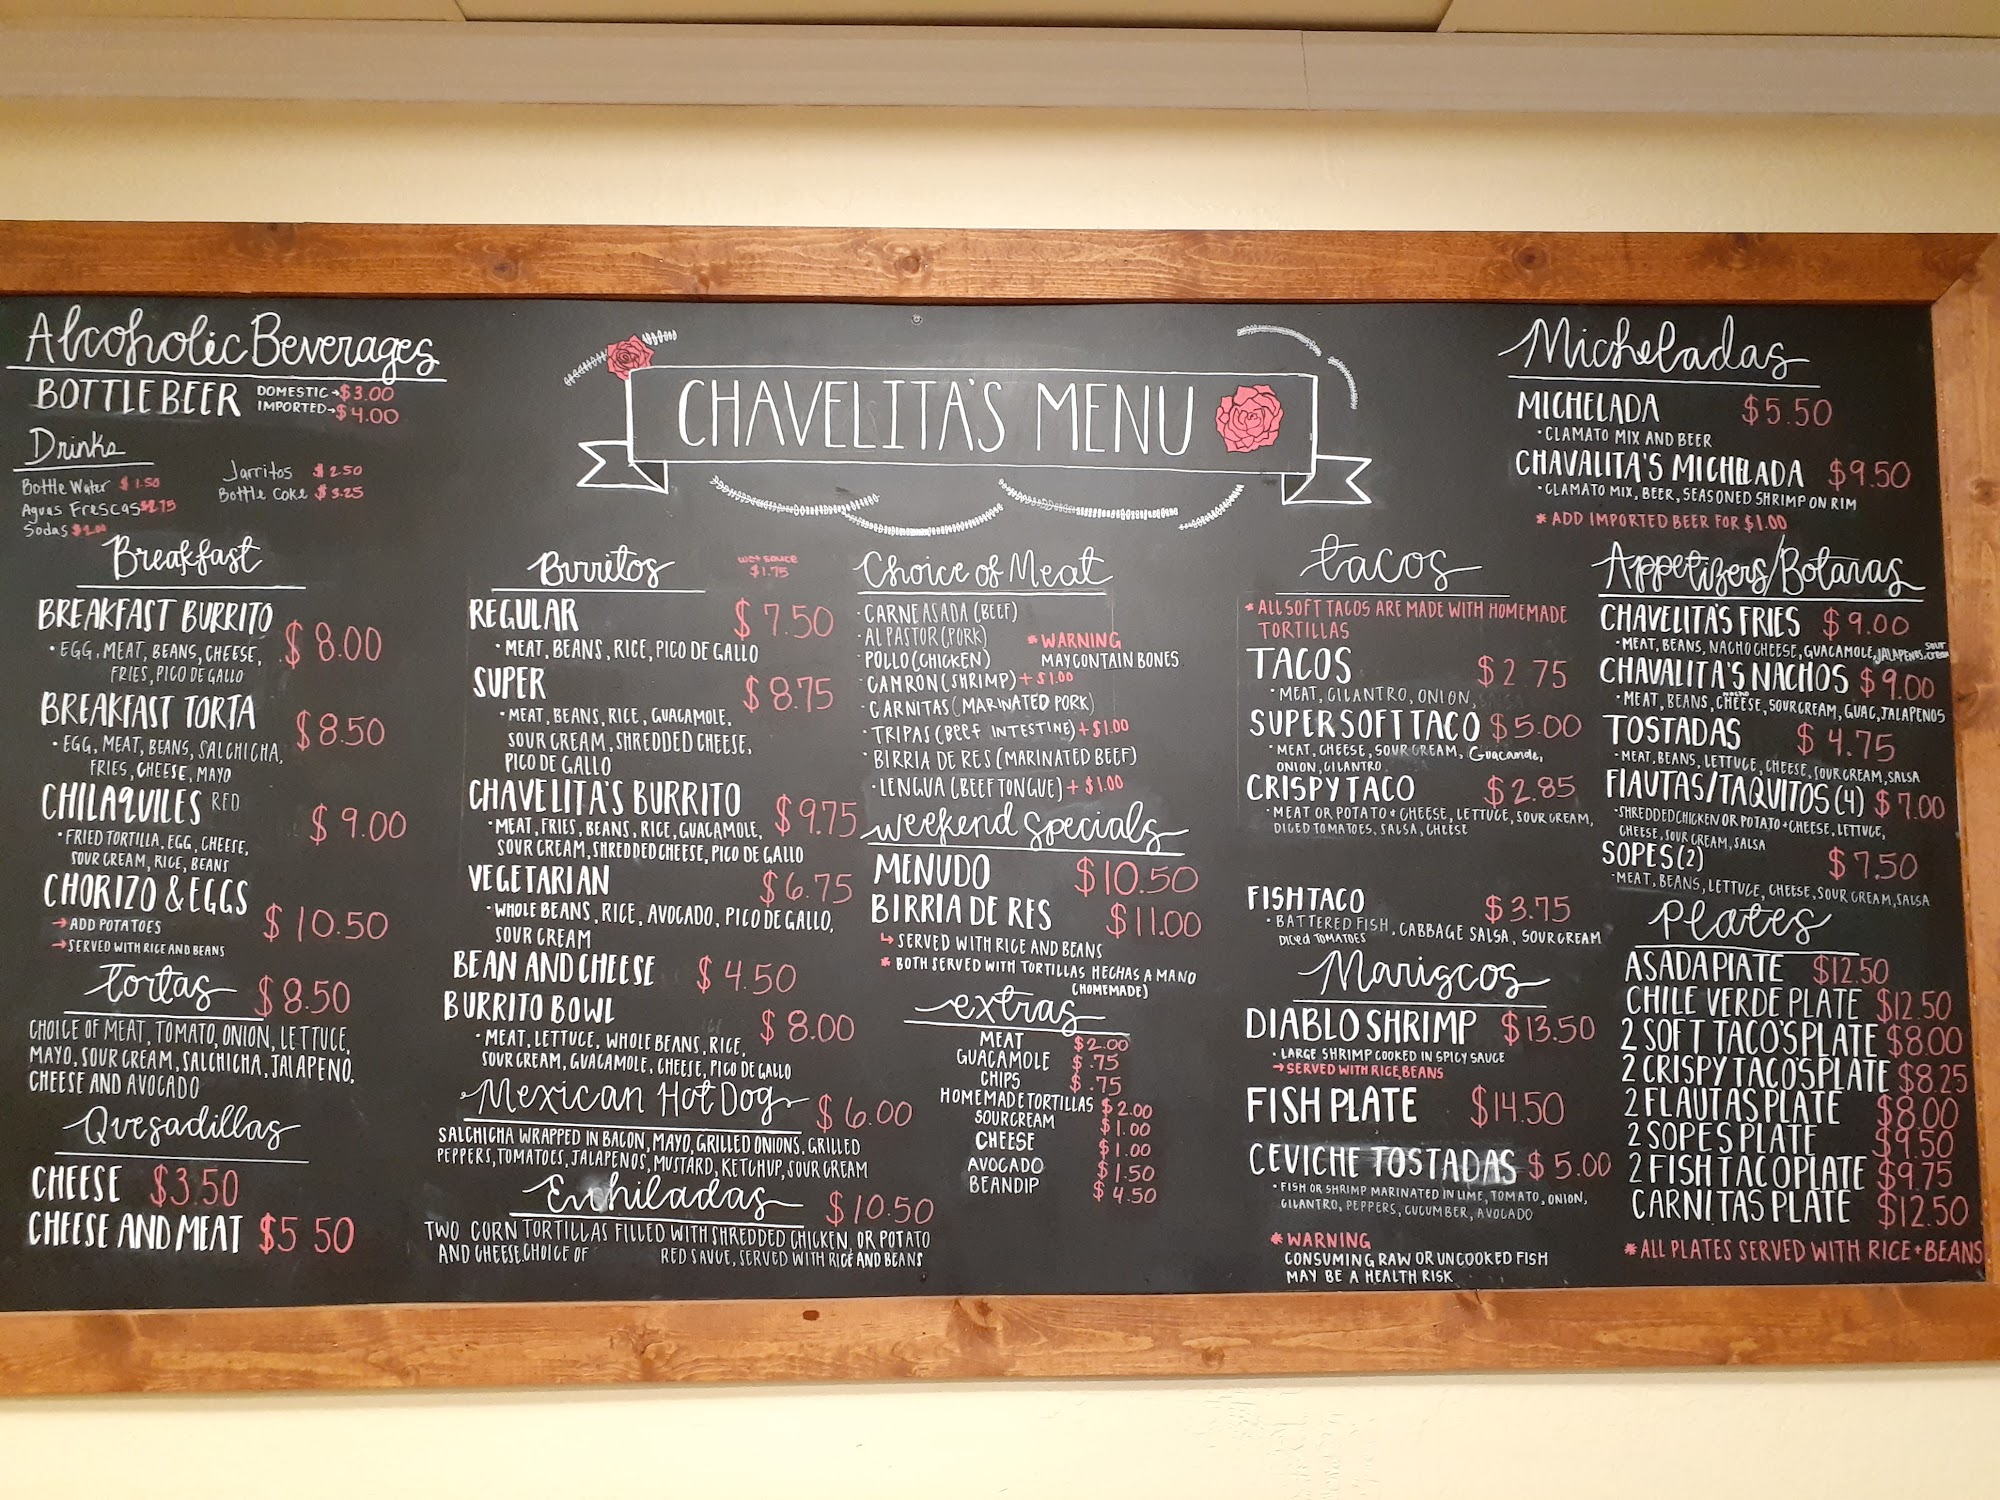 Alcoholic Beverages
BOTTLE BEER DOMESTIC → $3.00
IMPORTED → $4.00
Drinks
Bottle Water $1.50
Aguas Frescas $2.75
Sodas $2.00
Jarritos $2.50
Bottle Coke $3.25
CHAVELITA'S MENU
Micheladas
MICHELADA $5.50
• CLAMATO MIX AND BEER
CHAVALITA'S MICHELADA $9.50
• CLAMATO MIX, BEER, SEASONED SHRIMP ON RIM
* ADD IMPORTED BEER FOR $1.00
Breakfast
BREAKFAST BURRITO $8.00
• EGG, MEAT, BEANS, CHEESE,
FRIES, PICO DE GALLO
BREAKFAST TORTA $8.50
• EGG, MEAT, BEANS, SALCHICHA,
FRIES, CHEESE, MAYO
CHILAQUILES RED $9.00
• FRIED TORTILLA, EGG, CHEESE,
SOUR CREAM, RICE, BEANS
CHORIZO & EGGS $10.50
→ ADD POTATOES
→ SERVED WITH RICE AND BEANS
Tortas $8.50
CHOICE OF MEAT, TOMATO, ONION, LETTUCE,
MAYO, SOUR CREAM, SALCHICHA, JALAPEÑO,
CHEESE AND AVOCADO
Quesadillas
CHEESE $3.50
CHEESE AND MEAT $5 50
Burritos
wet sauce
$1.75
REGULAR $7.50
• MEAT, BEANS, RICE, PICO DE GALLO
SUPER $8.75
• MEAT, BEANS, RICE, GUACAMOLE,
SOUR CREAM, SHREDDED CHEESE,
PICO DE GALLO
CHAVELITA'S BURRITO $9.75
• MEAT, FRIES, BEANS, RICE, GUACAMOLE,
SOUR CREAM, SHREDDED CHEESE, PICO DE GALLO
VEGETARIAN $6.75
• WHOLE BEANS, RICE, AVOCADO, PICO DE GALLO,
SOUR CREAM
BEAN AND CHEESE $4.50
BURRITO BOWL $8.00
• MEAT, LETTUCE, WHOLE BEANS, RICE,
SOUR CREAM, GUACAMOLE, CHEESE, PICO DE GALLO
Mexican Hot Dog $6.00
SALCHICHA WRAPPED IN BACON, MAYO, GRILLED ONIONS, GRILLED
PEPPERS, TOMATOES, JALAPENOS, MUSTARD, KETCHUP, SOUR CREAM
Enchiladas $10.50
TWO CORN TORTILLAS FILLED WITH SHREDDED CHICKEN, OR POTATO
AND CHEESE.CHOICE OF RED SAUCE, SERVED WITH RICE AND BEANS
Choice of Meat
• CARNE ASADA (BEEF)
• AL PASTOR (PORK)
• POLLO (CHICKEN)
• CAMRON (SHRIMP) + $1.00
• CARNITAS (MARINATED PORK)
• TRIPAS (BEEF INTESTINE) + $1.00
• BIRRIA DE RES (MARINATED BEEF)
• LENGUA (BEEF TONGUE) + $1.00
* WARNING
MAY CONTAIN BONES
Weekend Specials
MENUDO $10.50
BIRRIA DE RES $11.00
↳ SERVED WITH RICE AND BEANS
* BOTH SERVED WITH TORTILLAS HECHAS A MANO
(HOMEMADE)
extras
MEAT $2.00
GUACAMOLE $.75
CHIPS $.75
HOMEMADE TORTILLAS $2.00
SOUR CREAM $1.00
CHEESE $1.00
AVOCADO $1.50
BEAN DIP $4.50
tacos
* ALL SOFT TACOS ARE MADE WITH HOMEMADE
TORTILLAS
TACOS $2 75
• MEAT, CILANTRO, ONION, SALSA
SUPER SOFT TACO $5.00
• MEAT, CHEESE, SOUR CREAM, Guacamole,
ONION, CILANTRO
CRISPY TACO $2.85
• MEAT OR POTATO + CHEESE, LETTUCE, SOUR CREAM,
DICED TOMATOES, SALSA, CHEESE
FISH TACO $3.75
• BATTERED FISH, CABBAGE SALSA, SOUR CREAM
Diced TOMATOES
Mariscos
DIABLO SHRIMP $13.50
• LARGE SHRIMP COOKED IN SPICY SAUCE
→ SERVED WITH RICE, BEANS
FISH PLATE $14.50
CEVICHE TOSTADAS $5.00
• FISH OR SHRIMP MARINATED IN LIME, TOMATO, ONION,
CILANTRO, PEPPERS, CUCUMBER, AVOCADO
* WARNING
CONSUMING RAW OR UNCOOKED FISH
MAY BE A HEALTH RISK
Appetizers/Botanas
CHAVELITA'S FRIES $9.00
• MEAT, BEANS, NACHO CHEESE, GUACAMOLE, JALAPENOS, SOUR CREAM
CHAVALITA'S NACHOS $9.00
• MEAT, BEANS, NACHO CHEESE, SOUR CREAM, GUAC, JALAPENOS
TOSTADAS $4.75
• MEAT, BEANS, LETTUCE, CHEESE, SOUR CREAM, SALSA
FLAUTAS/TAQUITOS (4) $7.00
• SHREDDED CHICKEN OR POTATO + CHEESE, LETTUCE,
CHEESE, SOUR CREAM, SALSA
SOPES (2) $7.50
• MEAT, BEANS, LETTUCE, CHEESE, SOUR CREAM, SALSA
Plates
ASADA PLATE $12.50
CHILE VERDE PLATE $12.50
2 SOFT TACO'S PLATE $8.00
2 CRISPY TACO'S PLATE $8.25
2 FLAUTAS PLATE $8.00
2 SOPES PLATE $9.50
2 FISH TACO PLATE $9.75
CARNITAS PLATE $12.50
* ALL PLATES SERVED WITH RICE + BEANS